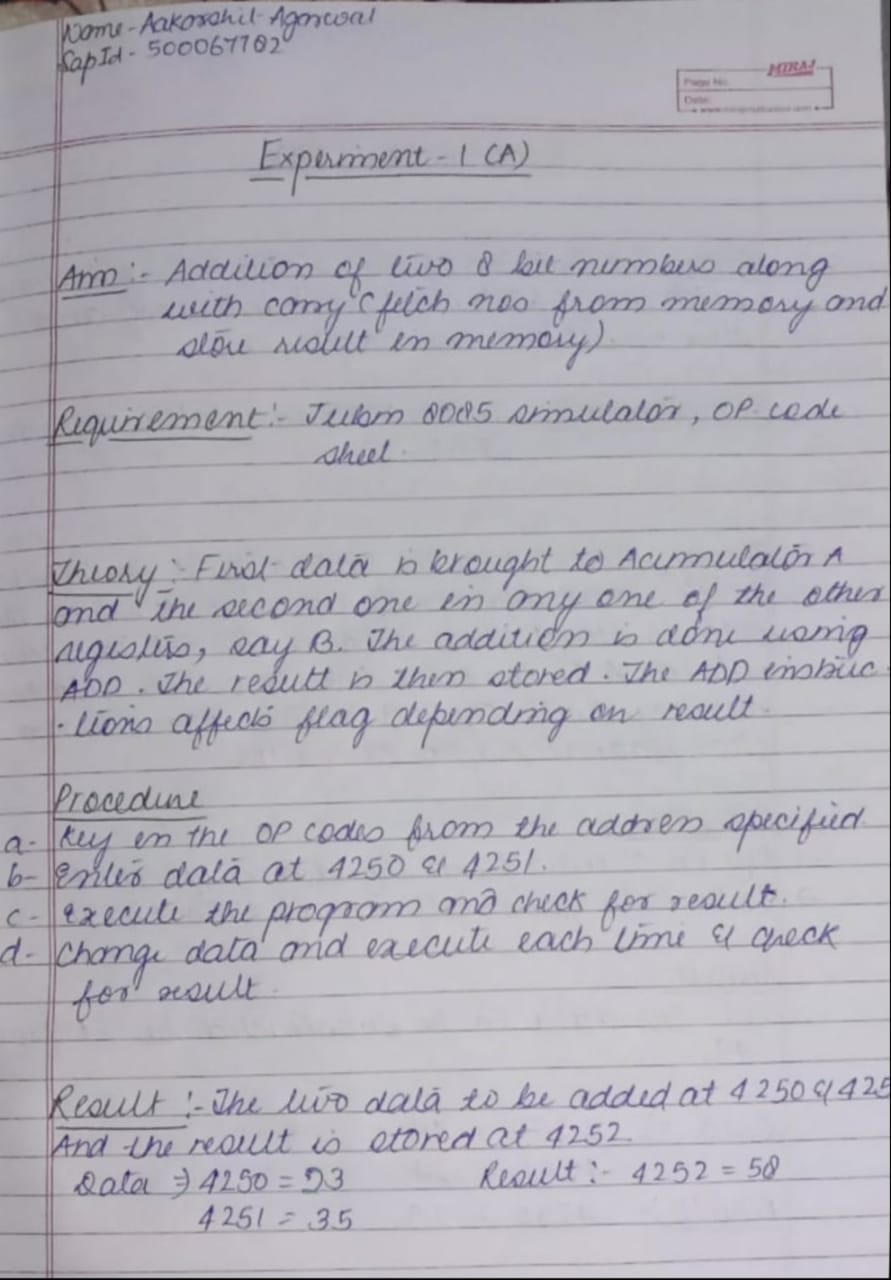 Name - Aakarshit Agarwal
Sap Id - 500067702
MIRAJ
Page No.
Date:
Experiment - 1 (A)
Aim :- Addition of two 8 bit numbers along
with carry (fetch nos from memory and
store result in memory)
Requirement :- Jubin 8085 simulator, OP code
sheet.
Theory : First data is brought to Acumulator A
and the second one in any one of the other
registers, say B. The addition is done using
ADD. The result is then stored. The ADD instruc
- tions affects flag depending on result.
Procedure
a- Key in the OP codes from the address specified.
b- Enter data at 4250 & 4251.
c- execute the program and check for result.
d- Change data and execute each time & check
for result.
Result :- The two data to be added at 4250 & 425
And the result is stored at 4252.
Data ⇒ 4250 = 23 Result :- 4252 = 58
4251 = 35